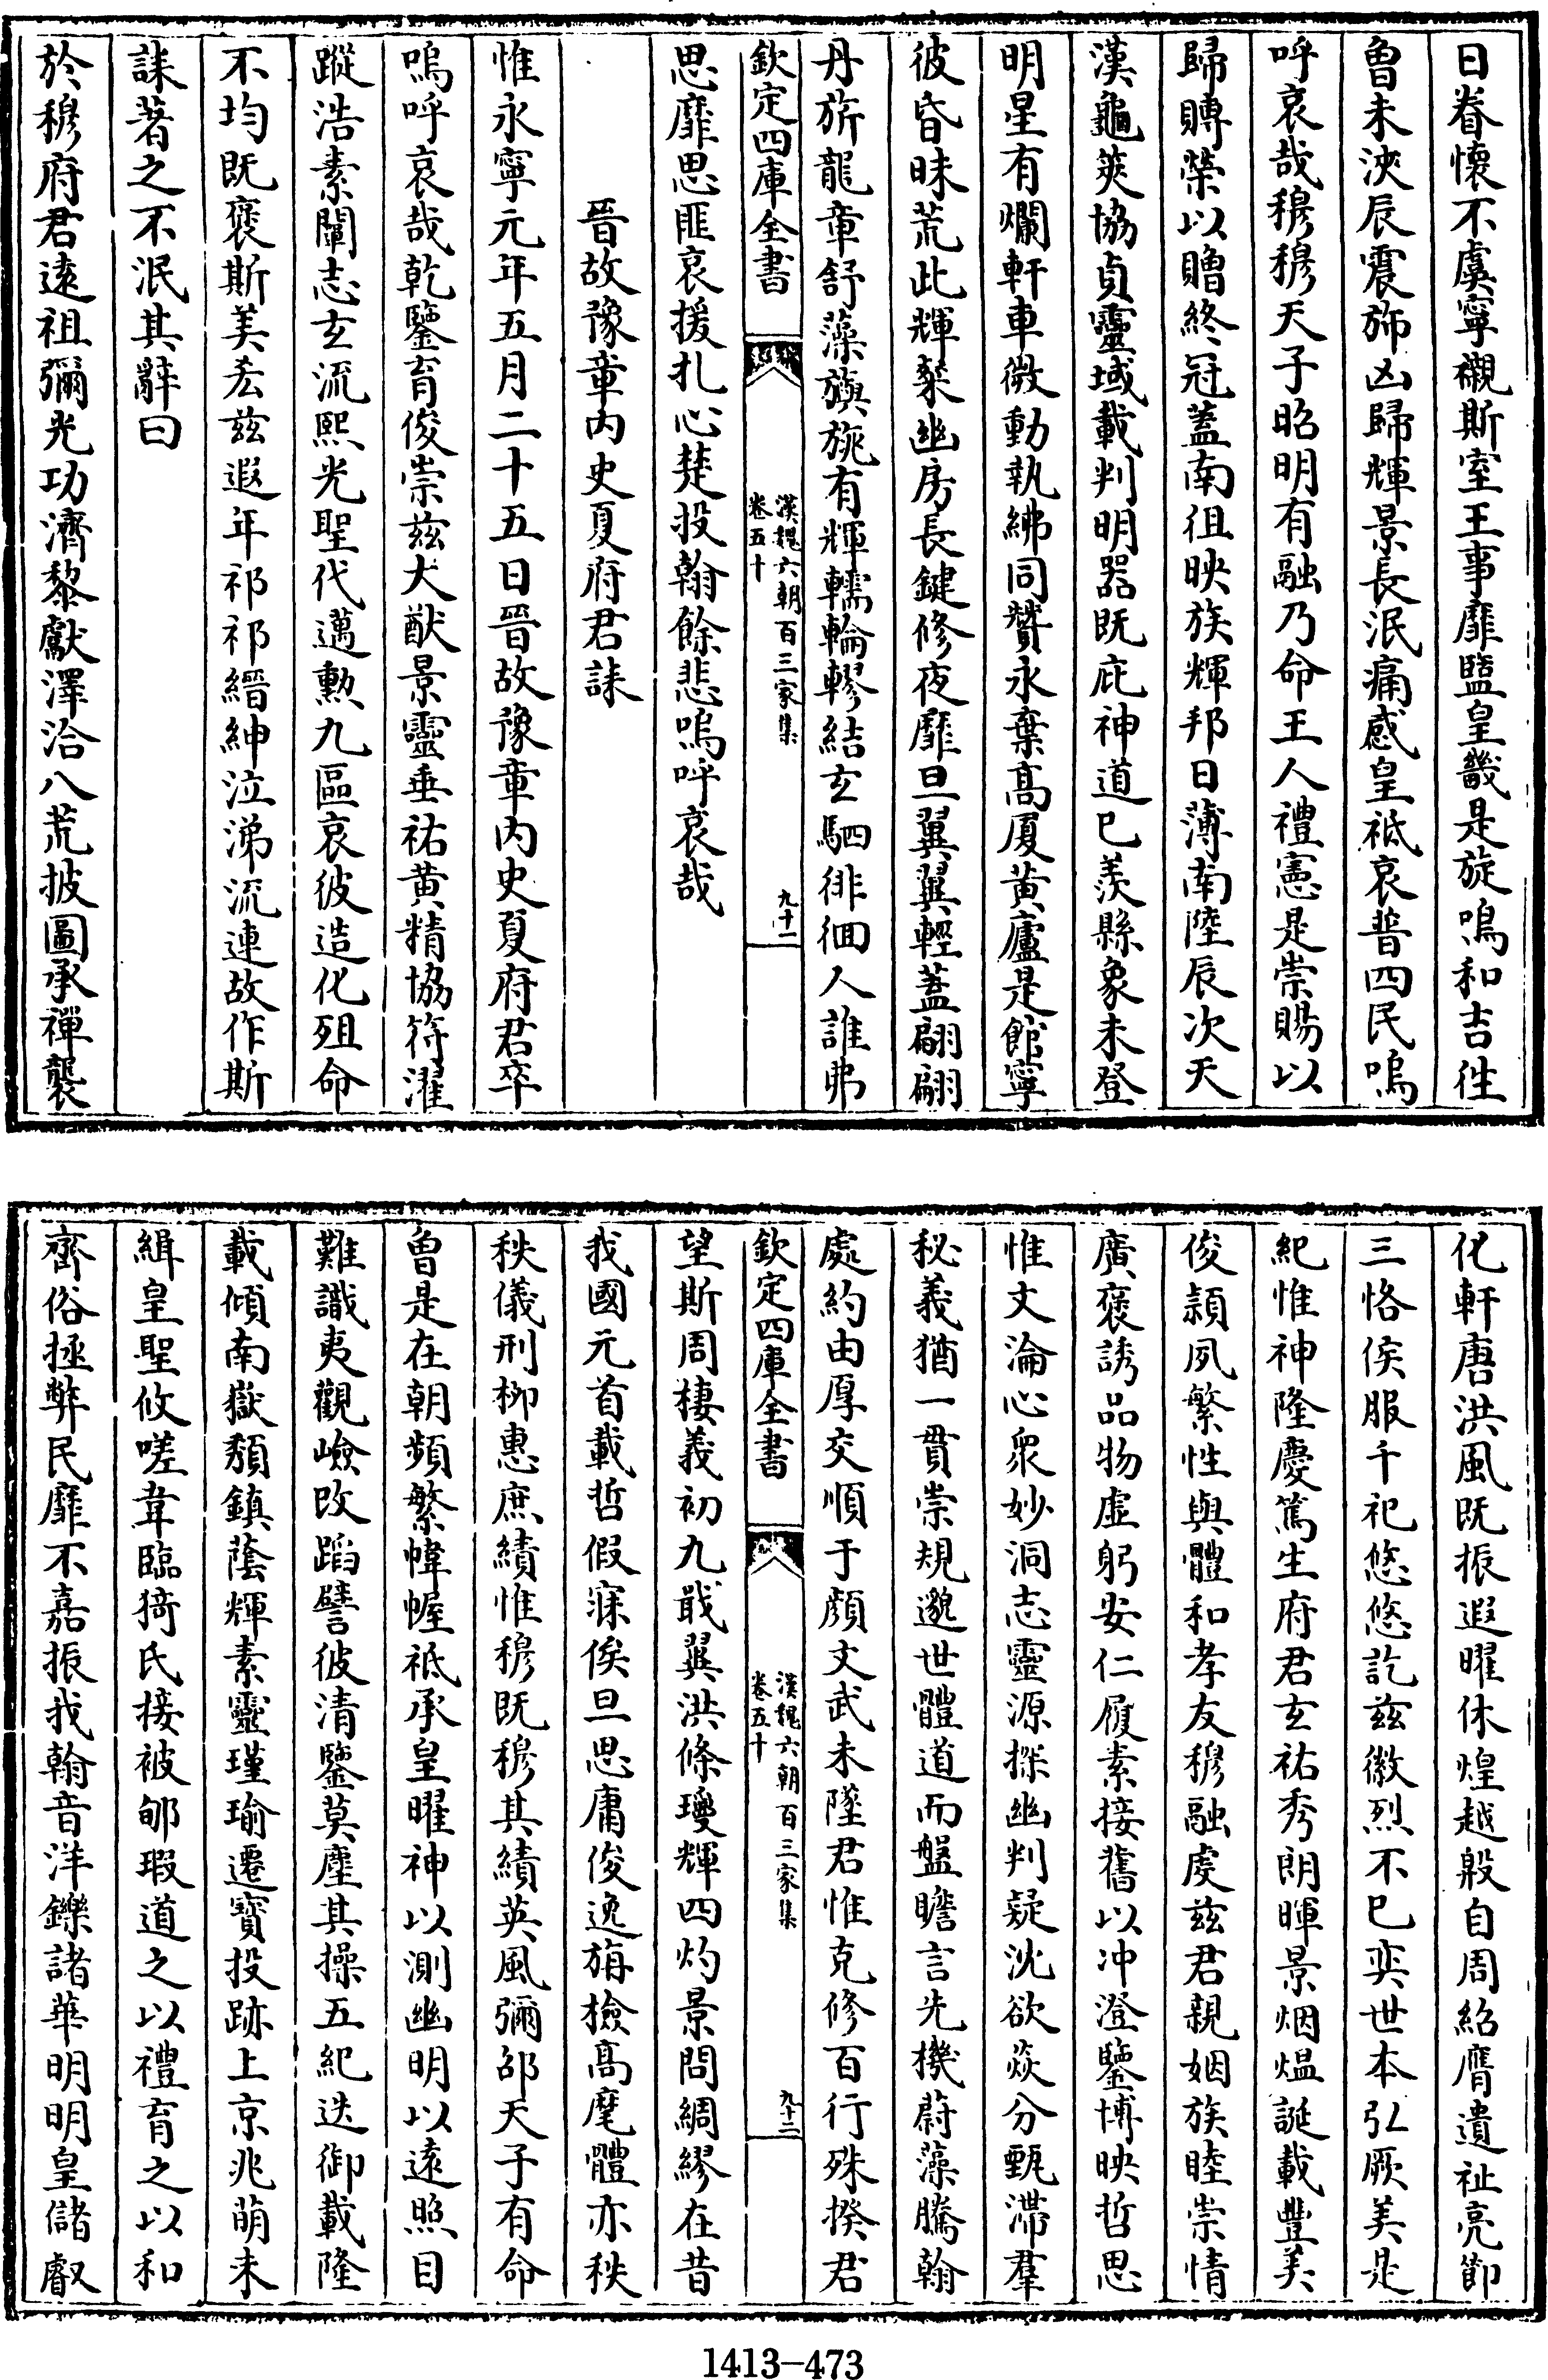 日眷懷不虞寧襯斯室王事靡盬皇畿是旋鳴和吉往
曾未浹辰震旆凶歸輝景長泯痛感皇祗哀普四民嗚
呼哀哉穆穆天子昭明有融乃命王人禮憲是崇賜以
歸賻榮以贈終冠蓋南徂映族輝邦日薄南陸辰次天
漢龜筴協貞靈域載判明器既庇神道已羨縣象未登
明星有爛軒車微動執紼同贊永棄高厦黄廬是館寧
彼昏昧荒此輝粲幽房長鍵修夜靡旦翼翼輕蓋翩翩
丹旂龍章舒藻旟旐有輝轜輪轇結玄駟徘徊人誰弗
欽定四庫全書
漢魏六朝百三家集
卷五十
九十一
思靡思匪哀援札心楚投翰餘悲嗚呼哀哉
晉故豫章内史夏府君誄
惟永寧元年五月二十五日晉故豫章内史夏府君卒
嗚呼哀哉乾鑒育俊崇兹大猷景靈垂祐黄精協符濯
蹤浩素闡志玄流熙光聖代邁勲九區哀彼造化殂命
不均既褒斯美宏兹遐年祁祁縉紳泣涕流連故作斯
誄著之不泯其辭曰
於穆府君遠祖彌光功濟黎獻澤洽八荒披圖承禪襲
化軒唐洪風既振遐曜休煌越殷自周紹膺遺祉亮節
三恪侯服千祀悠悠訖兹徽烈不已奕世本弘厥美是
紀惟神隆慶篤生府君玄祐秀朗暉景烟熅誕載豐美
俊穎夙繁性與體和孝友穆融虔兹君親姻族睦崇情
廣褒誘品物虚躬安仁履素接舊以冲澄鑒博映哲思
惟文淪心衆妙洞志靈源探幽判疑沈欲炎分甄滯羣
秘義猶一貫崇規邈世體道而盤瞻言先機蔚藻騰翰
處約由厚交順于顔文武未墜君惟克修百行殊揆君
欽定四庫全書
漢魏六朝百三家集
卷五十
九十二
望斯周棲義初九戢翼洪條瓊輝四灼景問綢繆在昔
我國元首載哲假寐俟旦思庸俊逸旃檢高麾體亦秩
秩儀刑柳惠庶績惟穆既穆其績英風彌邵天子有命
曾是在朝頻繁幃幄祗承皇曜神以測幽明以遠照目
難識夷觀嶮改蹈譬彼清鑒莫塵其操五紀迭御載隆
載傾南嶽頽鎮蔭輝素靈瑾瑜遷寶投跡上京兆萌未
緝皇聖攸嗟韋臨猗氏接被郇瑕道之以禮育之以和
齊俗拯弊民靡不嘉振我翰音洋鑠諸華明明皇儲叡
1413-473